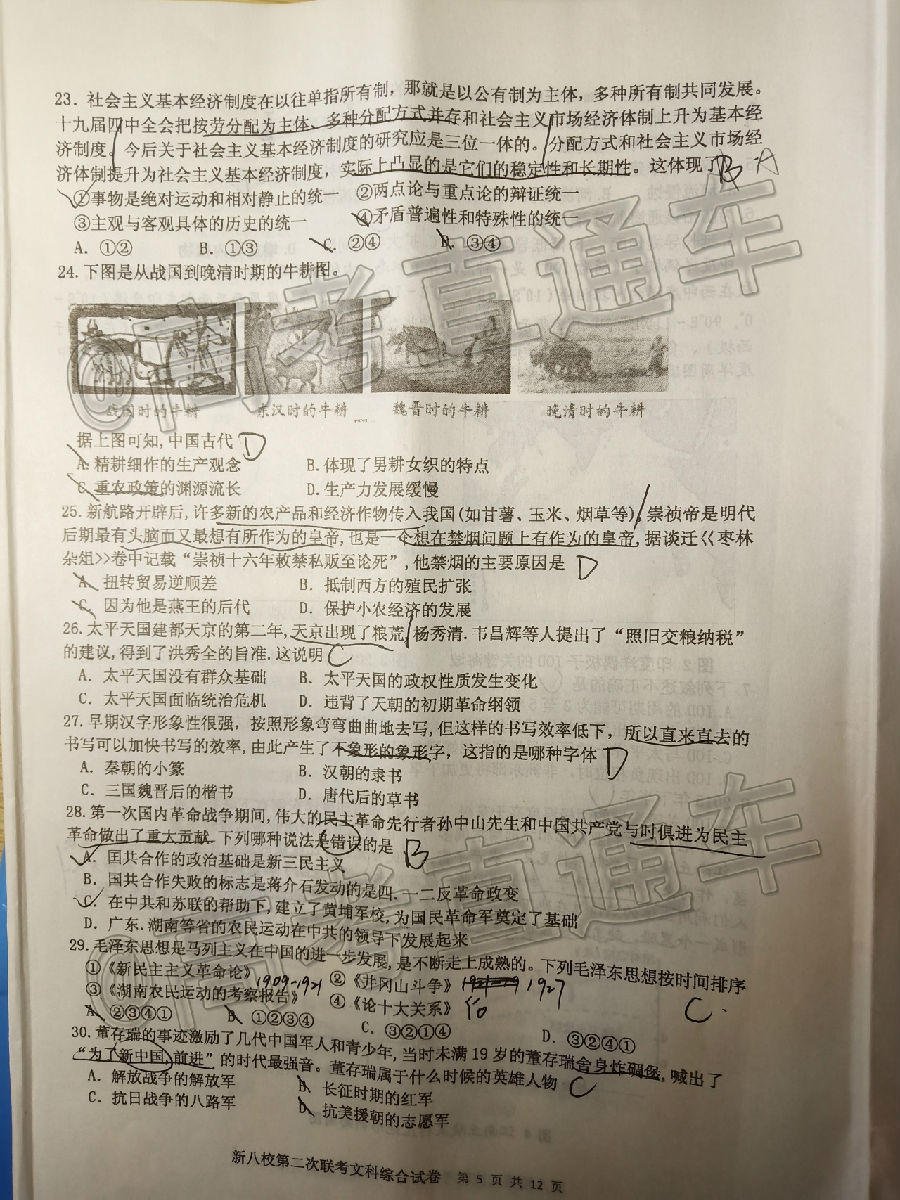 23. 社会主义基本经济制度在以往单指所有制，那就是以公有制为主体，多种所有制共同发展。
十九届四中全会把按劳分配为主体、多种分配方式并存和社会主义市场经济体制上升为基本经
济制度。今后关于社会主义基本经济制度的研究应是三位一体的。分配方式和社会主义市场经
济体制提升为社会主义基本经济制度，实际上凸显的是它们的稳定性和长期性。这体现了 B A
①事物是绝对运动和相对静止的统一 ②两点论与重点论的辩证统一
③主观与客观具体的历史的统一 ④矛盾普遍性和特殊性的统一
A. ①② B. ①③ C. ②④ D. ③④
24. 下图是从战国到晚清时期的牛耕图。
战国时的牛耕 东汉时的牛耕 魏晋时的牛耕 晚清时的牛耕
据上图可知，中国古代 D
A. 精耕细作的生产观念 B. 体现了男耕女织的特点
C. 重农政策的渊源流长 D. 生产力发展缓慢
25. 新航路开辟后，许多新的农产品和经济作物传入我国(如甘薯、玉米、烟草等)。崇祯帝是明代
后期最有头脑而又最想有所作为的皇帝，也是一个想在禁烟问题上有作为的皇帝，据谈迁<<枣林
杂俎>>卷中记载“崇祯十六年敕禁私贩至论死”，他禁烟的主要原因是 D
A. 扭转贸易逆顺差 B. 抵制西方的殖民扩张
C. 因为他是燕王的后代 D. 保护小农经济的发展
26. 太平天国建都天京的第二年，天京出现了粮荒，杨秀清.韦昌辉等人提出了“照旧交粮纳税”
的建议，得到了洪秀全的旨准.这说明 C
A. 太平天国没有群众基础 B. 太平天国的政权性质发生变化
C. 太平天国面临统治危机 D. 违背了天朝的初期革命纲领
27. 早期汉字形象性很强，按照形象弯弯曲曲地去写，但这样的书写效率低下，所以直来直去的
书写可以加快书写的效率，由此产生了不象形的象形字，这指的是哪种字体 D
A. 秦朝的小篆 B. 汉朝的隶书
C. 三国魏晋后的楷书 D. 唐代后的草书
28. 第一次国内革命战争期间，伟大的民主革命先行者孙中山先生和中国共产党与时俱进为民主
革命做出了重大贡献.下列哪种说法是错误的是 B
A. 国共合作的政治基础是新三民主义
B. 国共合作失败的标志是蒋介石发动的是四.一二反革命政变
C. 在中共和苏联的帮助下，建立了黄埔军校，为国民革命军奠定了基础
D. 广东.湖南等省的农民运动在中共的领导下发展起来
29. 毛泽东思想是马列主义在中国的进一步发展，是不断走上成熟的。下列毛泽东思想按时间排序
①《新民主主义革命论》 ②《井冈山斗争》 1927
③《湖南农民运动的考察报告》 ④《论十大关系》 C
A. ②③④① B. ①②③④ C. ③②①④ D. ③②④①
30. 董存瑞的事迹激励了几代中国军人和青少年，当时未满 19 岁的董存瑞舍身炸碉堡，喊出了
“为了新中国，前进”的时代最强音。董存瑞属于什么时候的英雄人物 C
A. 解放战争的解放军 B. 长征时期的红军
C. 抗日战争的八路军 D. 抗美援朝的志愿军
新八校第二次联考文科综合试卷 第 5 页 共 12 页
@高考直通车
@高考直通车